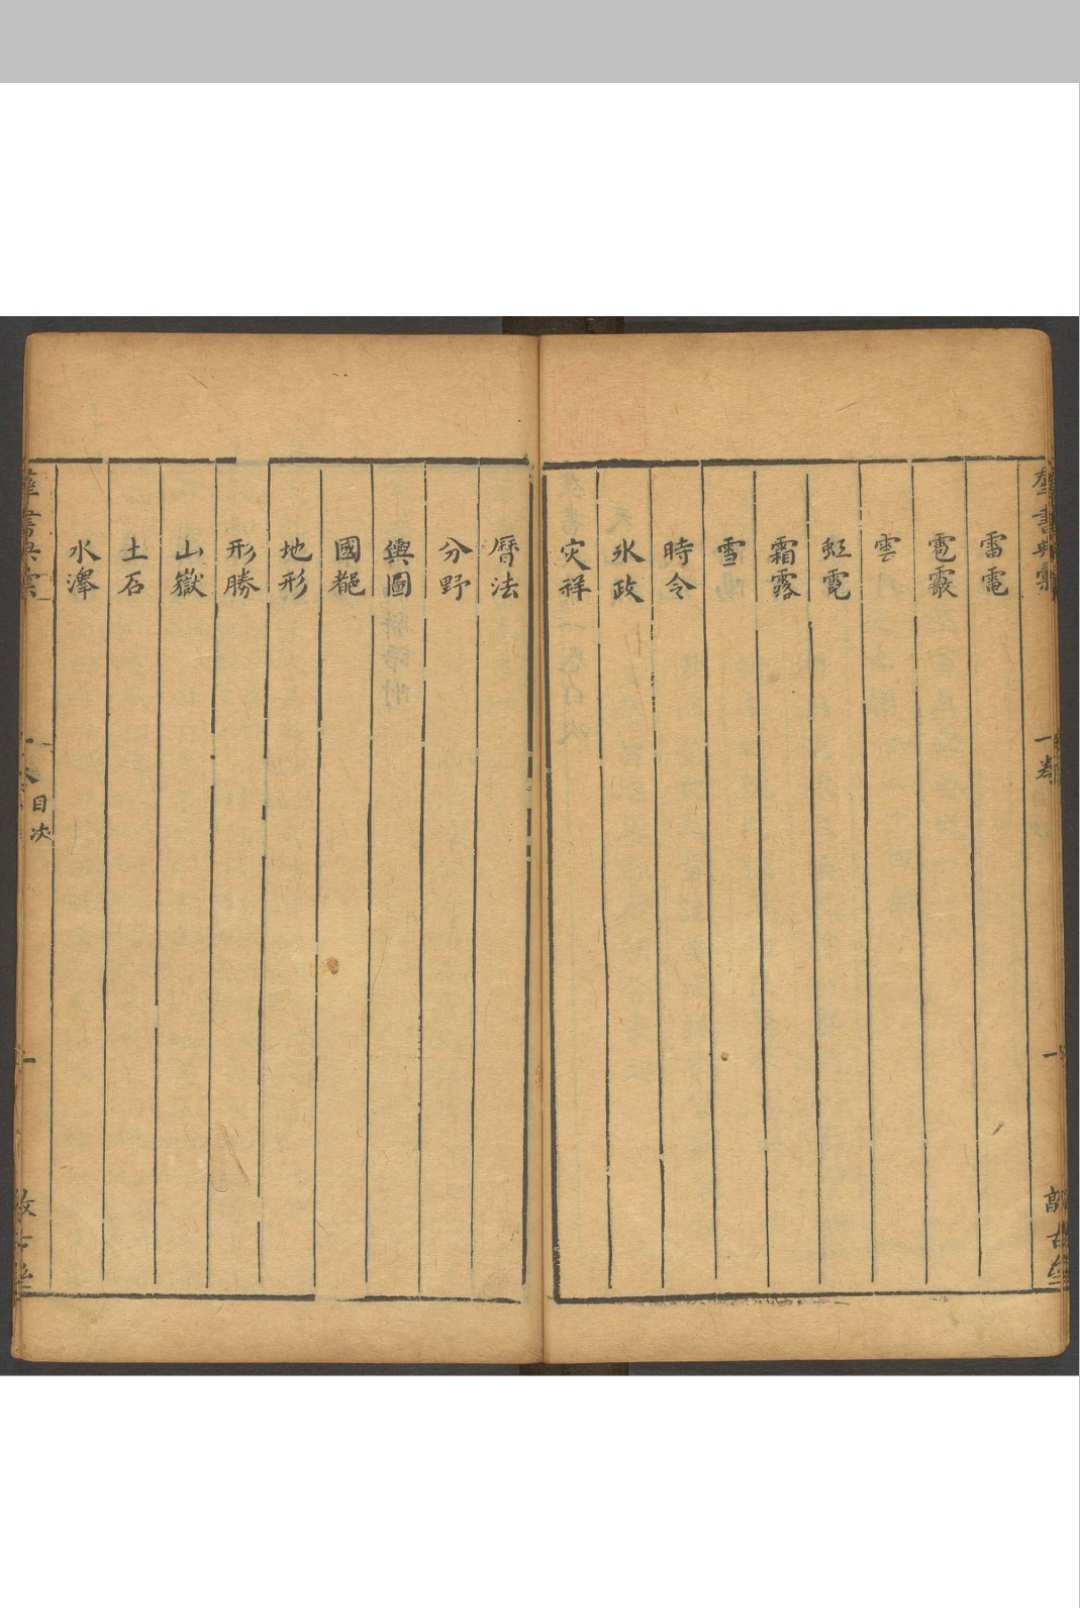 雷電
雹霰
雲
虹霓
霜露
雪
時令
氷政
灾祥
曆法
分野
輿圖
國都
地形
形勝
山嶽
土石
水澤
一卷
一
目次